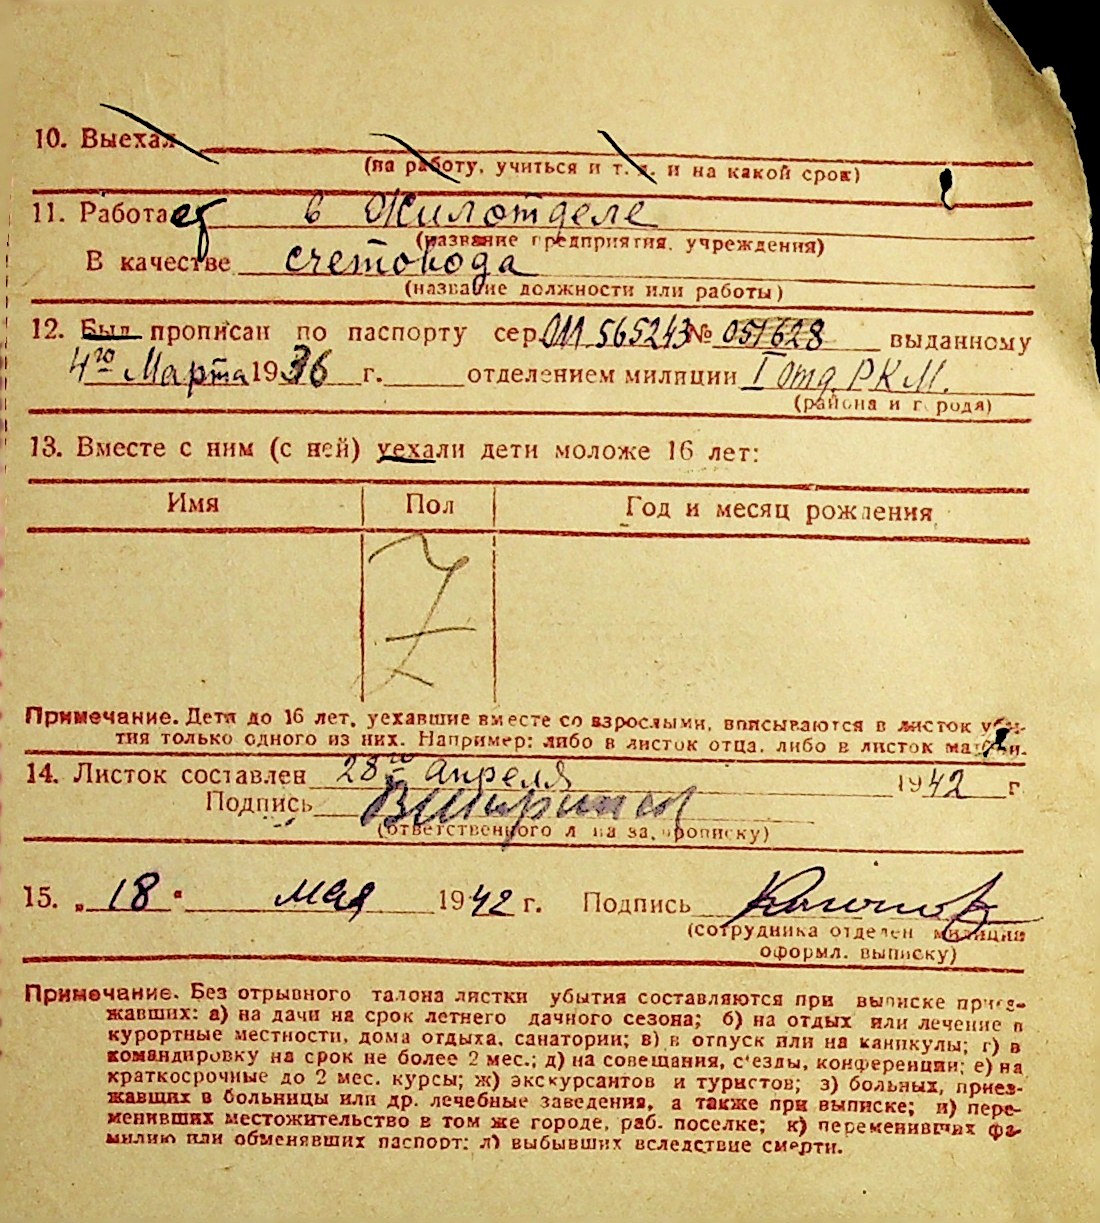 10. Выехал
(на работу, учиться и т. д. и на какой срок)
11. Работает в Жилотделе
(название предприятия, учреждения)
В качестве счетовода
(название должности или работы)
12. Был прописан по паспорту сер. 565243 № 051628 выданному
4го Марта 1936 г. отделением милиции I отд. Р.К.М.
(района и города)
13. Вместе с ним (с ней) уехали дети моложе 16 лет:
Имя Пол Год и месяц рождения
Примечание. Дети до 16 лет, уехавшие вместе со взрослыми, вписываются в листок убы-
тия только одного из них. Например: либо в листок отца, либо в листок матери.
14. Листок составлен 28го апреля 1942 г
Подпись
(ответственного лица за прописку)
15. „18“ мая 1942 г. Подпись
(сотрудника отделен милиции
оформл. выписку)
Примечание. Без отрывного талона листки убытия составляются при выписке приез-
жавших: а) на дачи на срок летнего дачного сезона; б) на отдых или лечение в
курортные местности, дома отдыха, санатории; в) в отпуск или на каникулы; г) в
командировку на срок не более 2 мес.; д) на совещания, с'езды, конференции; е) на
краткосрочные до 2 мес. курсы; ж) экскурсантов и туристов; з) больных, приез-
жавших в больницы или др. лечебные заведения, а также при выписке; и) пере-
менивших местожительство в том же городе, раб. поселке; к) переменивших фа-
милию или обменявших паспорт; л) выбывших вследствие смерти.